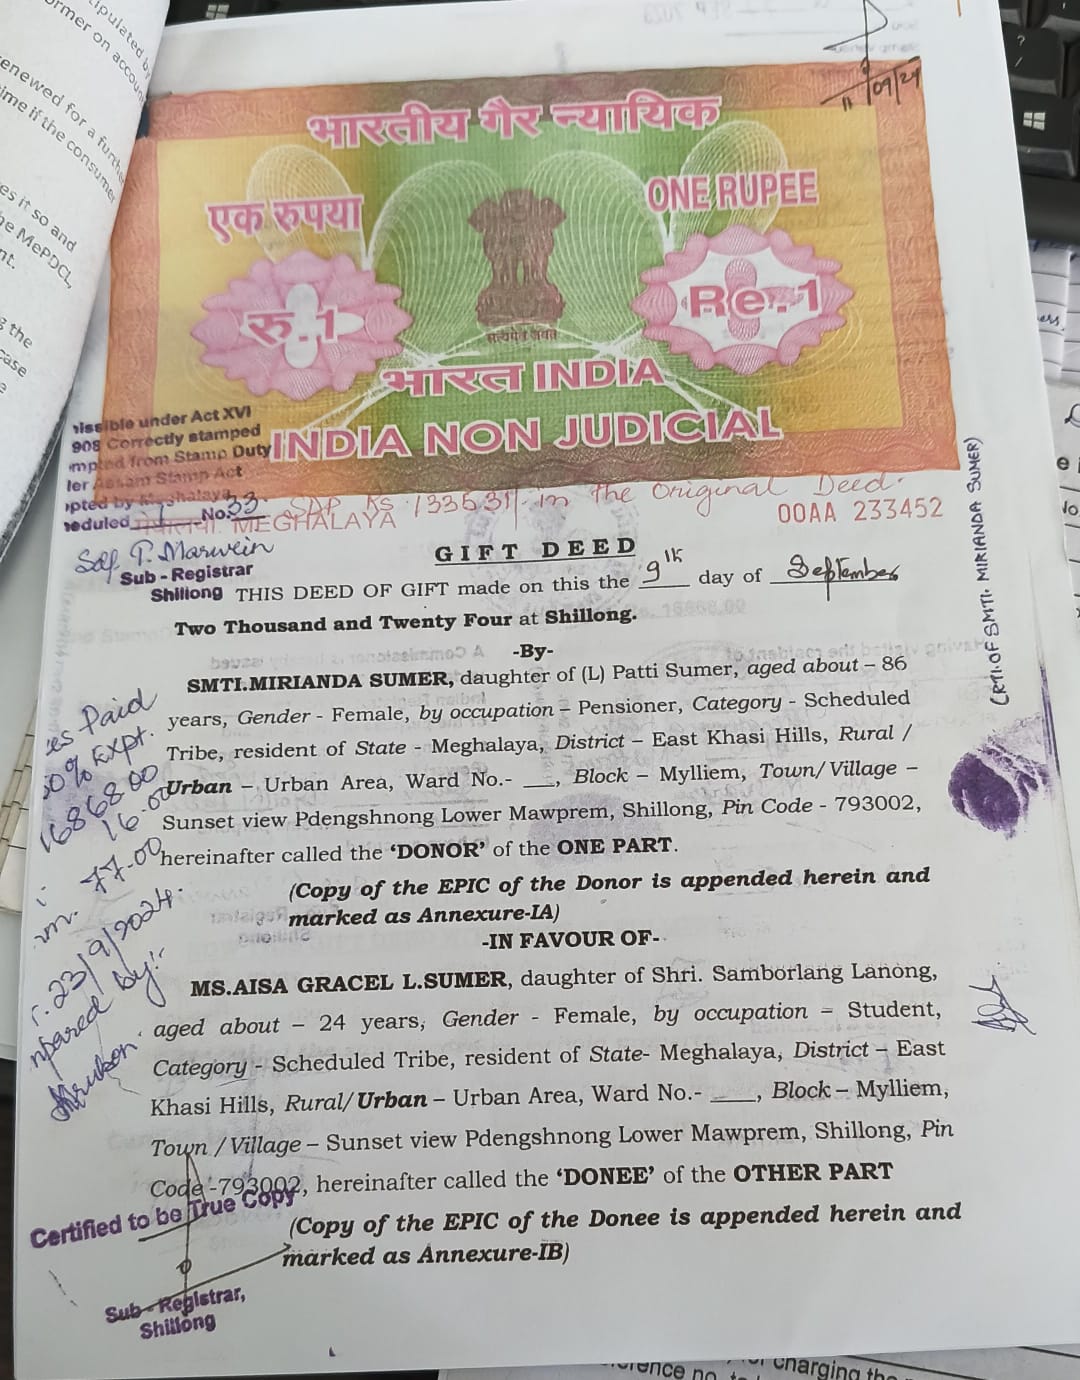 11/09/24
भारतीय गैर न्यायिक
एक रुपया
ONE RUPEE
रु.1
Re.1
सत्यमेव जयते
भारत INDIA
INDIA NON JUDICIAL
issible under Act XVI
908 Correctly stamped
mpted from Stamp Duty
ler Assam Stamp Act
pted by Meghalaya
heduled No. 33.
मेघालया MEGHALAYA
SDP Rs 133531/- in the Original Deed.
00AA 233452
Sd/. P. Marwein
Sub - Registrar
Shillong
GIFT DEED
THIS DEED OF GIFT made on this the 9th day of September
Two Thousand and Twenty Four at Shillong.
-By-
SMTI.MIRIANDA SUMER, daughter of (L) Patti Sumer, aged about – 86
years, Gender - Female, by occupation – Pensioner, Category - Scheduled
Tribe, resident of State - Meghalaya, District – East Khasi Hills, Rural /
Urban – Urban Area, Ward No.- ___, Block – Mylliem, Town/Village –
Sunset view Pdengshnong Lower Mawprem, Shillong, Pin Code - 793002,
hereinafter called the ‘DONOR’ of the ONE PART.
(Copy of the EPIC of the Donor is appended herein and
marked as Annexure-IA)
-IN FAVOUR OF-
MS.AISA GRACEL L.SUMER, daughter of Shri. Samborlang Lanong,
aged about – 24 years, Gender - Female, by occupation – Student,
Category - Scheduled Tribe, resident of State- Meghalaya, District – East
Khasi Hills, Rural/Urban – Urban Area, Ward No.- ____, Block – Mylliem,
Town /Village – Sunset view Pdengshnong Lower Mawprem, Shillong, Pin
Code -793002, hereinafter called the ‘DONEE’ of the OTHER PART
(Copy of the EPIC of the Donee is appended herein and
marked as Annexure-IB)
es Paid
50% Expt.
16868.00
16.00
77.00
23/9/2024.
mpared by:-
Certified to be True Copy
Sub - Registrar,
Shillong
(RTI. OF SMTI. MIRIANDA SUMER)
ipulated by
ormer on account
enewed for a furthe
ime if the consumer
es it so and
he MePDCL,
nt.
s the
case
charging the